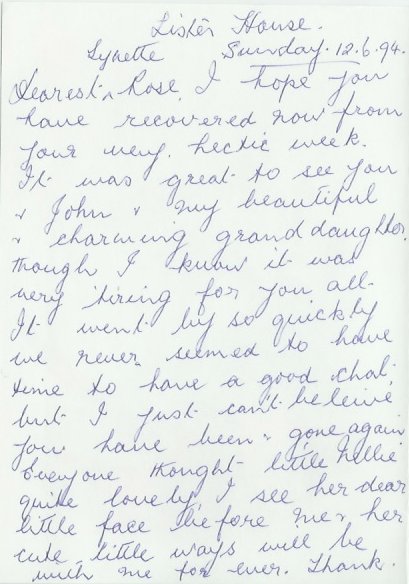 Lister House.
Sunday. 12.6.94.
Lynette
Dearest ^ Rose, I hope you
have recovered now from
your very. hectic week.
It was great to see you
& John & my beautiful
& charming granddaughter,
though I know it was
very tiring for you all.
It went by so quickly
we never seemed to have
time to have a good chat,
but I just can't beleive
you have been & gone again
Everyone thought little Nellie
quite lovely, I see her dear
little face before me & her
cute little ways will be
with me for ever. Thank.